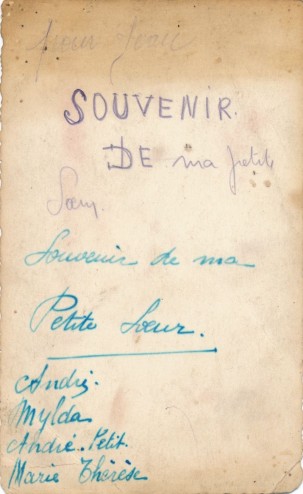 SOUVENIR.
DE ma petite
Sœur.
Souvenir de ma
Petite Sœur.
André.
Mylda
André. Petit.
Marie Thérèse